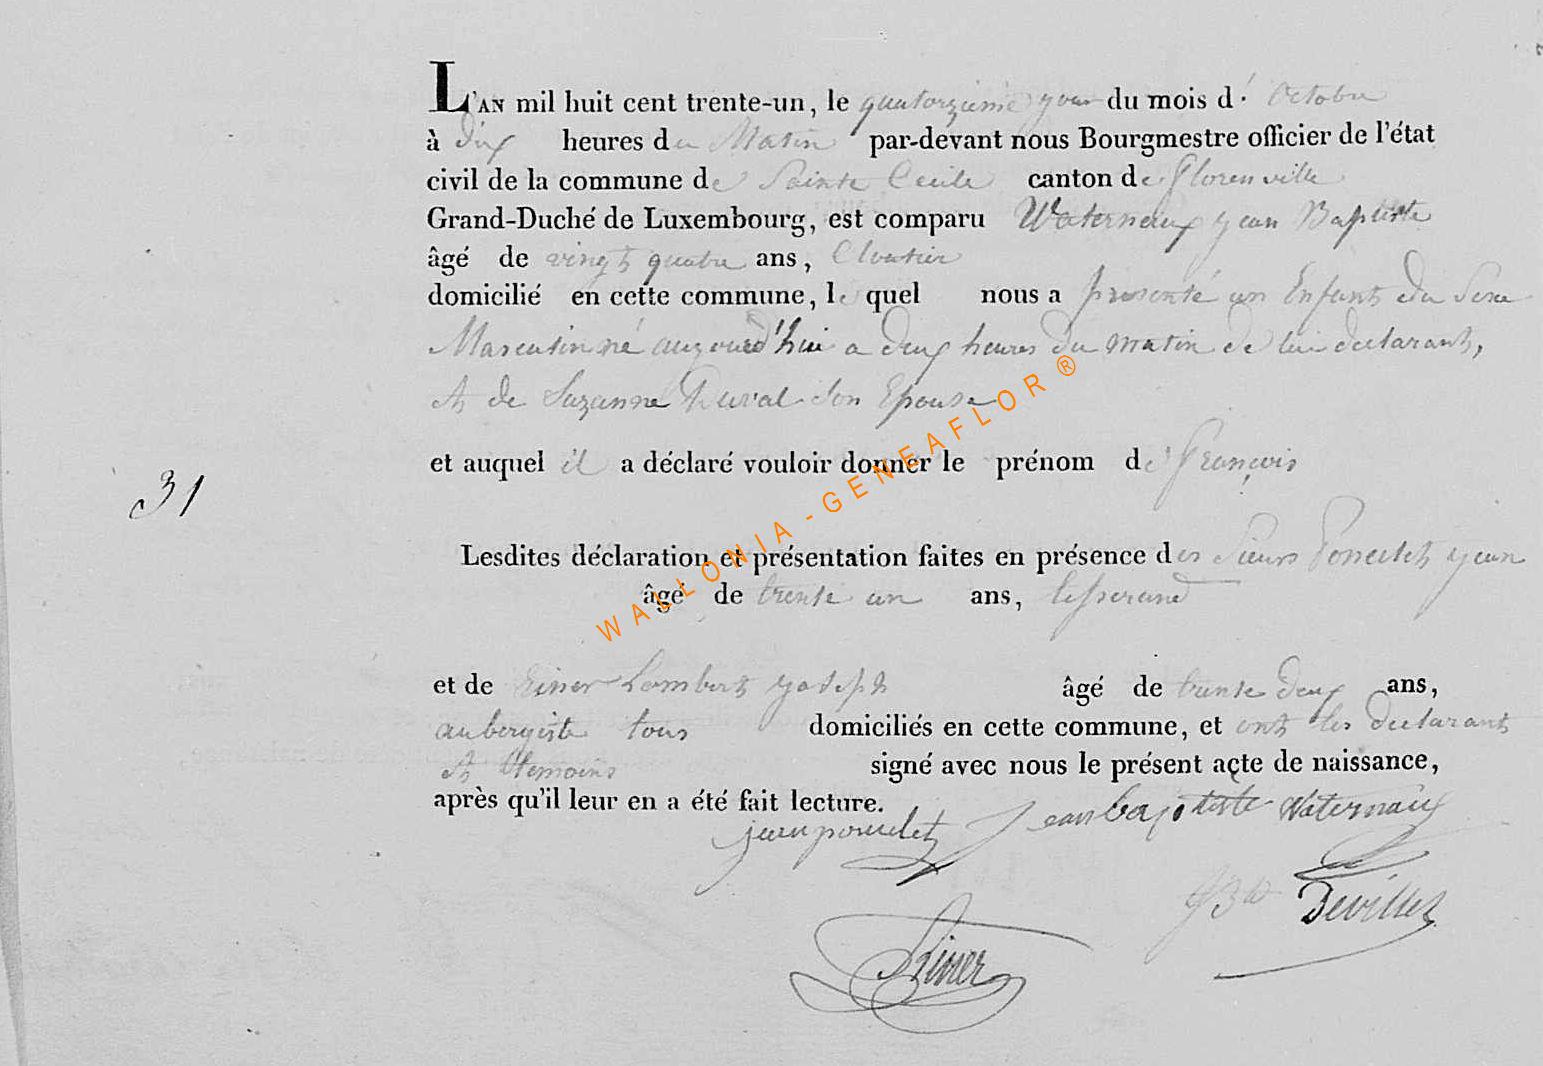 L'AN mil huit cent trente-un, le quatorzieme jour du mois d' Octobre
à dix heures du Matin par-devant nous Bourgmestre officier de l'état
civil de la commune de Sainte Cecile canton de Florenville
Grand-Duché de Luxembourg, est comparu Waternaux jean Baptiste
âgé de vingt quatre ans, Cloutier
domicilié en cette commune, le quel nous a presenté un Enfant du Sexe
Masculin né aujourd'hui a deux heures du matin de lui declarant,
et de Suzanne Duval son Epouse
et auquel il a déclaré vouloir donner le prénom de François
31
Lesdites déclaration et présentation faites en présence des Sieurs Poncelet jean
âgé de trente un ans, tisserand
et de Lambert joseph âgé de trente deux ans,
aubergiste tous domiciliés en cette commune, et ont les declarant
et temoins signé avec nous le présent acte de naissance,
après qu'il leur en a été fait lecture.
jean poncelet Jean baptiste Waternaux
JBte Devillet
WALLONIA - GENEAFLOR ®